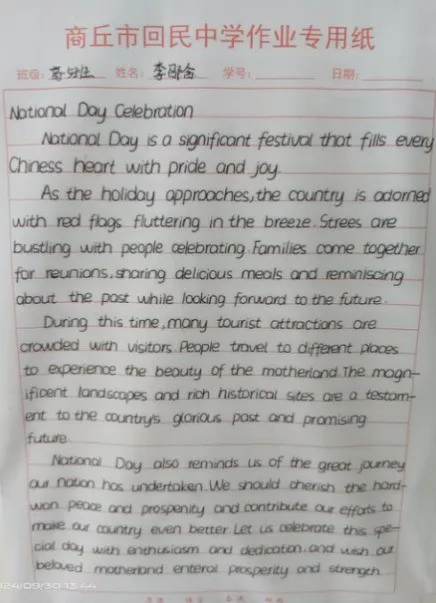 商丘市回民中学作业专用纸
班级: 姓名: 李 学号: 日期:
National Day Celebration
National Day is a significant festival that fills every
Chiness heart with pride and joy.
As the holiday approaches, the country is adorned
with red flags fluttering in the breeze. Strees are
bustling with people celebrating. Families come together
for reunions, sharing delicious meals and reminiscing
about the past while looking forward to the future.
During this time, many tourist attractions are
crowded with visitors. People travel to different places
to experience the beauty of the motherland. The magn-
ificent landscapes and rich historical sites are a testam-
ent to the country's glorious past and promising
future.
National Day also reminds us of the great journey
our nation has undertaken. We should cherish the hard-
won peace and prosperity and contribute our efforts to
make our country even better. Let us celebrate this spe-
cial day with enthusiasm and dedication, and wish our
beloved motherland enteral prosperity and strength.
24/09/30 13:44